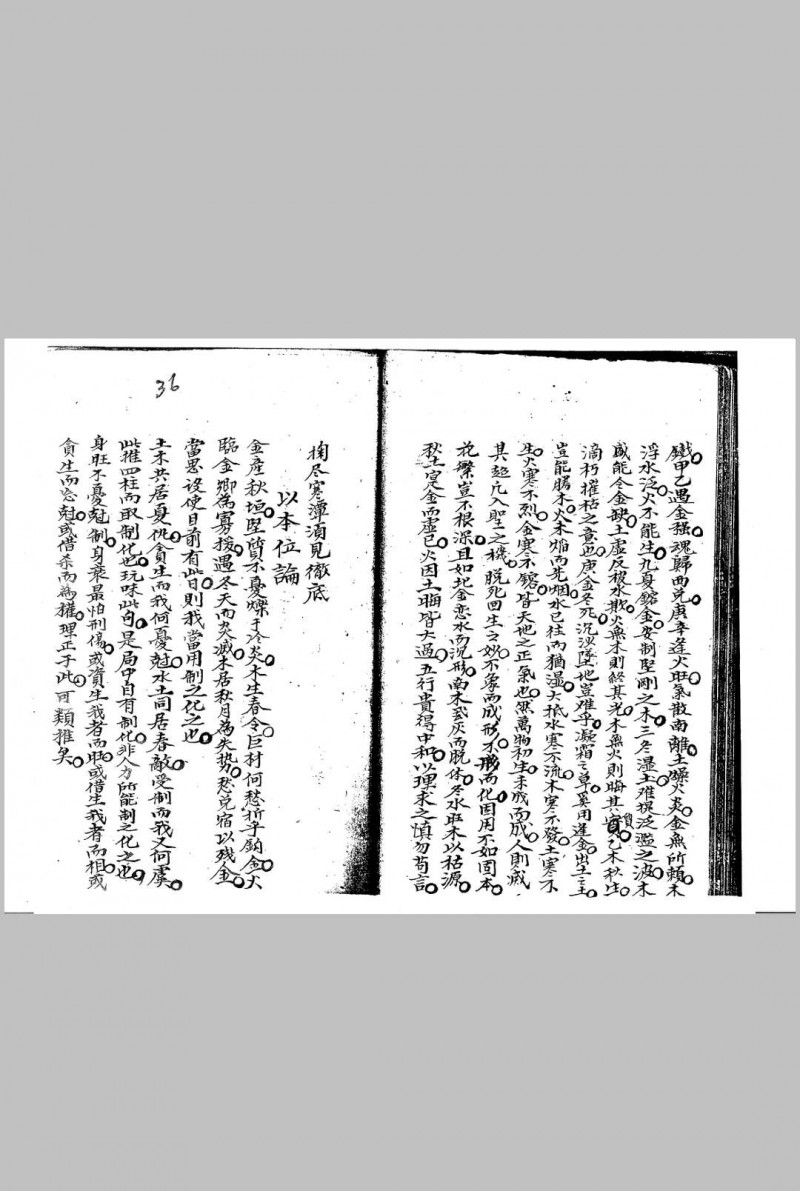 鐵甲乙遇金強魂歸西兌庚辛逢火旺氣散南離土燥火炎金無所賴木
浮水泛火不能生九夏鎔金安制堅剛之木三冬濕土难堤泛濫之波木
盛能令金缺土虛反被水欺火無木則終其光木無火則晦其質乙木秋生
滴朽摧枯之意也庚金冬死沉沙墜地豈难乎凝霜之草奚用逢金出土之土
豈能勝木火未焰而先烟水已往而猶濕大抵水寒不流木寒不發土寒不
生火寒不烈金寒不鎔皆天地之正氣也然萬物初生未成而成人則滅
其超凡入聖之機脱死回生之妙不象而成形不形而化固用不如固本
花繁豈不根深且如北金恋水而沉形南木飛灰而脱体冬水旺木以枯源
秋土寔金而虛已火因土晦皆大過五行貴得中和以理求之慎勿苟言
36
掬尽寒潭須見徹底
以本位論
金産秋垣堅質不憂爍于冷炎木生春令巨材何愁折乎鈍金火
臨金鄉為寡援遇冬天而炎滅木居秋月為失势愁兌宿以残金
當思设使日前有此則我當用制之化之也
土木共居憂仇貪生而我何憂尅水土同居春敵受制而我又何虞
此推四柱而取制化也玩味此句是局中自有制化非人力所能制之化之也
身旺不憂尅制身衰最怕刑傷或資生我者而旺或借生我者而相或
貪生而忘尅或借杀而為權理正于此可類推矣